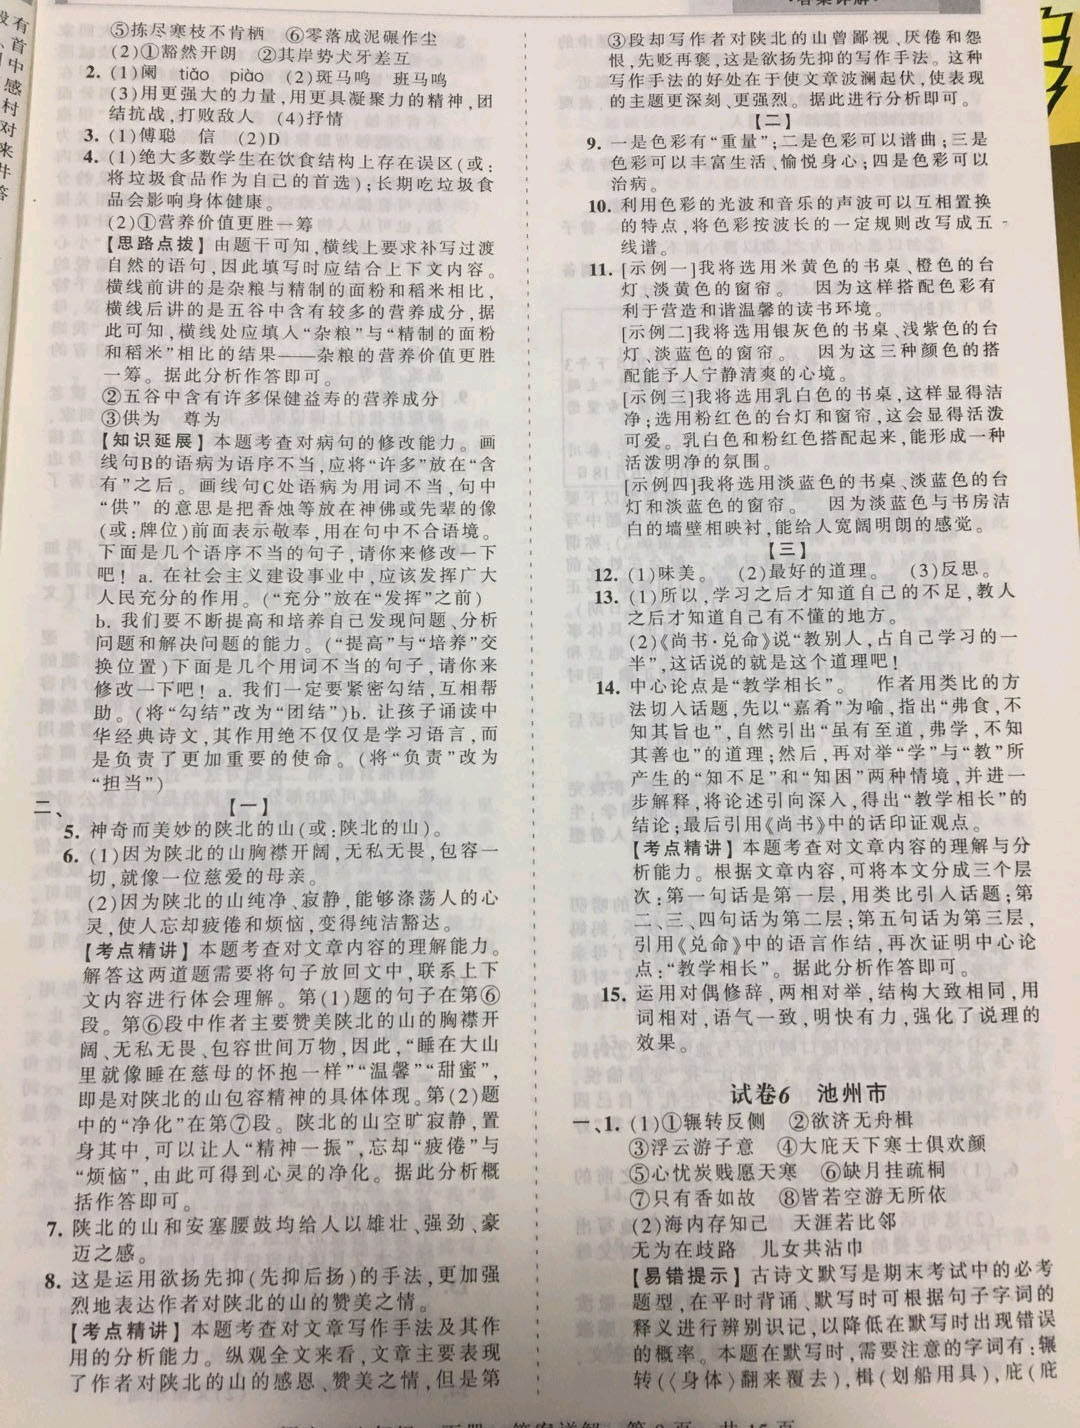 ⑤拣尽寒枝不肯栖　⑥零落成泥碾作尘
(2)①豁然开朗　②其岸势犬牙差互
2. (1)阑　tiǎo　piào　(2)斑马鸣　班马鸣
(3)用更强大的力量,用更具凝聚力的精神,团
结抗战,打败敌人　(4)抒情
3. (1)傅聪　信　(2)D
4. (1)绝大多数学生在饮食结构上存在误区(或:
将垃圾食品作为自己的首选);长期吃垃圾食
品会影响身体健康。
(2)①营养价值更胜一筹
【思路点拨】由题干可知,横线上要求补写过渡
自然的语句,因此填写时应结合上下文内容。
横线前讲的是杂粮与精制的面粉和稻米相比,
横线后讲的是五谷中含有较多的营养成分,据
此可知,横线处应填入“杂粮”与“精制的面粉
和稻米”相比的结果——杂粮的营养价值更胜
一筹。据此分析作答即可。
②五谷中含有许多保健益寿的营养成分
③供为　尊为
【知识延展】本题考查对病句的修改能力。画
线句B的语病为语序不当,应将“许多”放在“含
有”之后。画线句C处语病为用词不当,句中
“供”的意思是把香烛等放在神佛或先辈的像
(或:牌位)前面表示敬奉,用在句中不合语境。
下面是几个语序不当的句子,请你来修改一下
吧！a. 在社会主义建设事业中,应该发挥广大
人民充分的作用。(“充分”放在“发挥”之前)
b. 我们要不断提高和培养自己发现问题、分析
问题和解决问题的能力。(“提高”与“培养”交
换位置)下面是几个用词不当的句子,请你来
修改一下吧！a. 我们一定要紧密勾结,互相帮
助。(将“勾结”改为“团结”)b. 让孩子诵读中
华经典诗文,其作用绝不仅仅是学习语言,而
是负责了更加重要的使命。(将“负责”改为
“担当”)
二、　【一】
5. 神奇而美妙的陕北的山(或:陕北的山)。
6. (1)因为陕北的山胸襟开阔,无私无畏,包容一
切,就像一位慈爱的母亲。
(2)因为陕北的山纯净、寂静,能够涤荡人的心
灵,使人忘却疲倦和烦恼,变得纯洁豁达。
【考点精讲】本题考查对文章内容的理解能力。
解答这两道题需要将句子放回文中,联系上下
文内容进行体会理解。第(1)题的句子在第⑥
段。第⑥段中作者主要赞美陕北的山的胸襟开
阔、无私无畏、包容世间万物,因此,“睡在大山
里就像睡在慈母的怀抱一样”“温馨”“甜蜜”,
即是对陕北的山包容精神的具体体现。第(2)题
中的“净化”在第⑦段。陕北的山空旷寂静,置
身其中,可以让人“精神一振”,忘却“疲倦”与
“烦恼”,由此可得到心灵的净化。据此分析概
括作答即可。
7. 陕北的山和安塞腰鼓均给人以雄壮、强劲、豪
迈之感。
8. 这是运用欲扬先抑(先抑后扬)的手法,更加强
烈地表达作者对陕北的山的赞美之情。
【考点精讲】本题考查对文章写作手法及其作
用的分析能力。纵观全文来看,文章主要表现
了作者对陕北的山的感恩、赞美之情,但是第
③段却写作者对陕北的山曾鄙视、厌倦和怨
恨,先贬再褒,这是欲扬先抑的写作手法。这种
写作手法的好处在于使文章波澜起伏,使表现
的主题更深刻、更强烈。据此进行分析即可。
【二】
9. 一是色彩有“重量”;二是色彩可以谱曲;三是
色彩可以丰富生活、愉悦身心;四是色彩可以
治病。
10. 利用色彩的光波和音乐的声波可以互相置换
的特点,将色彩按波长的一定规则改写成五
线谱。
11. [示例一]我将选用米黄色的书桌、橙色的台
灯、淡黄色的窗帘。　因为这样搭配色彩有
利于营造和谐温馨的读书环境。
[示例二]我将选用银灰色的书桌、浅紫色的台
灯、淡蓝色的窗帘。　因为这三种颜色的搭
配能予人宁静清爽的心境。
[示例三]我将选用乳白色的书桌,这样显得洁
净;选用粉红色的台灯和窗帘,这会显得活泼
可爱。乳白色和粉红色搭配起来,能形成一种
活泼明净的氛围。
[示例四]我将选用淡蓝色的书桌、淡蓝色的台
灯和淡蓝色的窗帘。　因为淡蓝色与书房洁
白的墙壁相映衬,能给人宽阔明朗的感觉。
【三】
12. (1)味美。　(2)最好的道理。　(3)反思。
13. (1)所以,学习之后才知道自己的不足,教人
之后才知道自己有不懂的地方。
(2)《尚书·兑命》说“教别人,占自己学习的一
半”,这话说的就是这个道理吧！
14. 中心论点是“教学相长”。　作者用类比的方
法切入话题,先以“嘉肴”为喻,指出“弗食,不
知其旨也”,自然引出“虽有至道,弗学,不知
其善也”的道理;然后,再对举“学”与“教”所
产生的“知不足”和“知困”两种情境,并进一
步解释,将论述引向深入,得出“教学相长”的
结论;最后引用《尚书》中的话印证观点。
【考点精讲】本题考查对文章内容的理解与分
析能力。根据文章内容,可将本文分成三个层
次:第一句话是第一层,用类比引入话题;第
二、三、四句话为第二层;第五句话为第三层,
引用《兑命》中的语言作结,再次证明中心论
点:“教学相长”。据此分析作答即可。
15. 运用对偶修辞,两相对举,结构大致相同,用
词相对,语气一致,明快有力,强化了说理的
效果。
试卷6　池州市
一、1. (1)①辗转反侧　②欲济无舟楫
③浮云游子意　④大庇天下寒士俱欢颜
⑤心忧炭贱愿天寒　⑥缺月挂疏桐
⑦只有香如故　⑧皆若空游无所依
(2)海内存知己　天涯若比邻
无为在歧路　儿女共沾巾
【易错提示】古诗文默写是期末考试中的必考
题型,在平时背诵、默写时可根据句子字词的
释义进行辨别识记,以降低在默写时出现错误
的概率。本题在默写时,需要注意的字词有:辗
转(〈身体〉翻来覆去),楫(划船用具),庇(庇